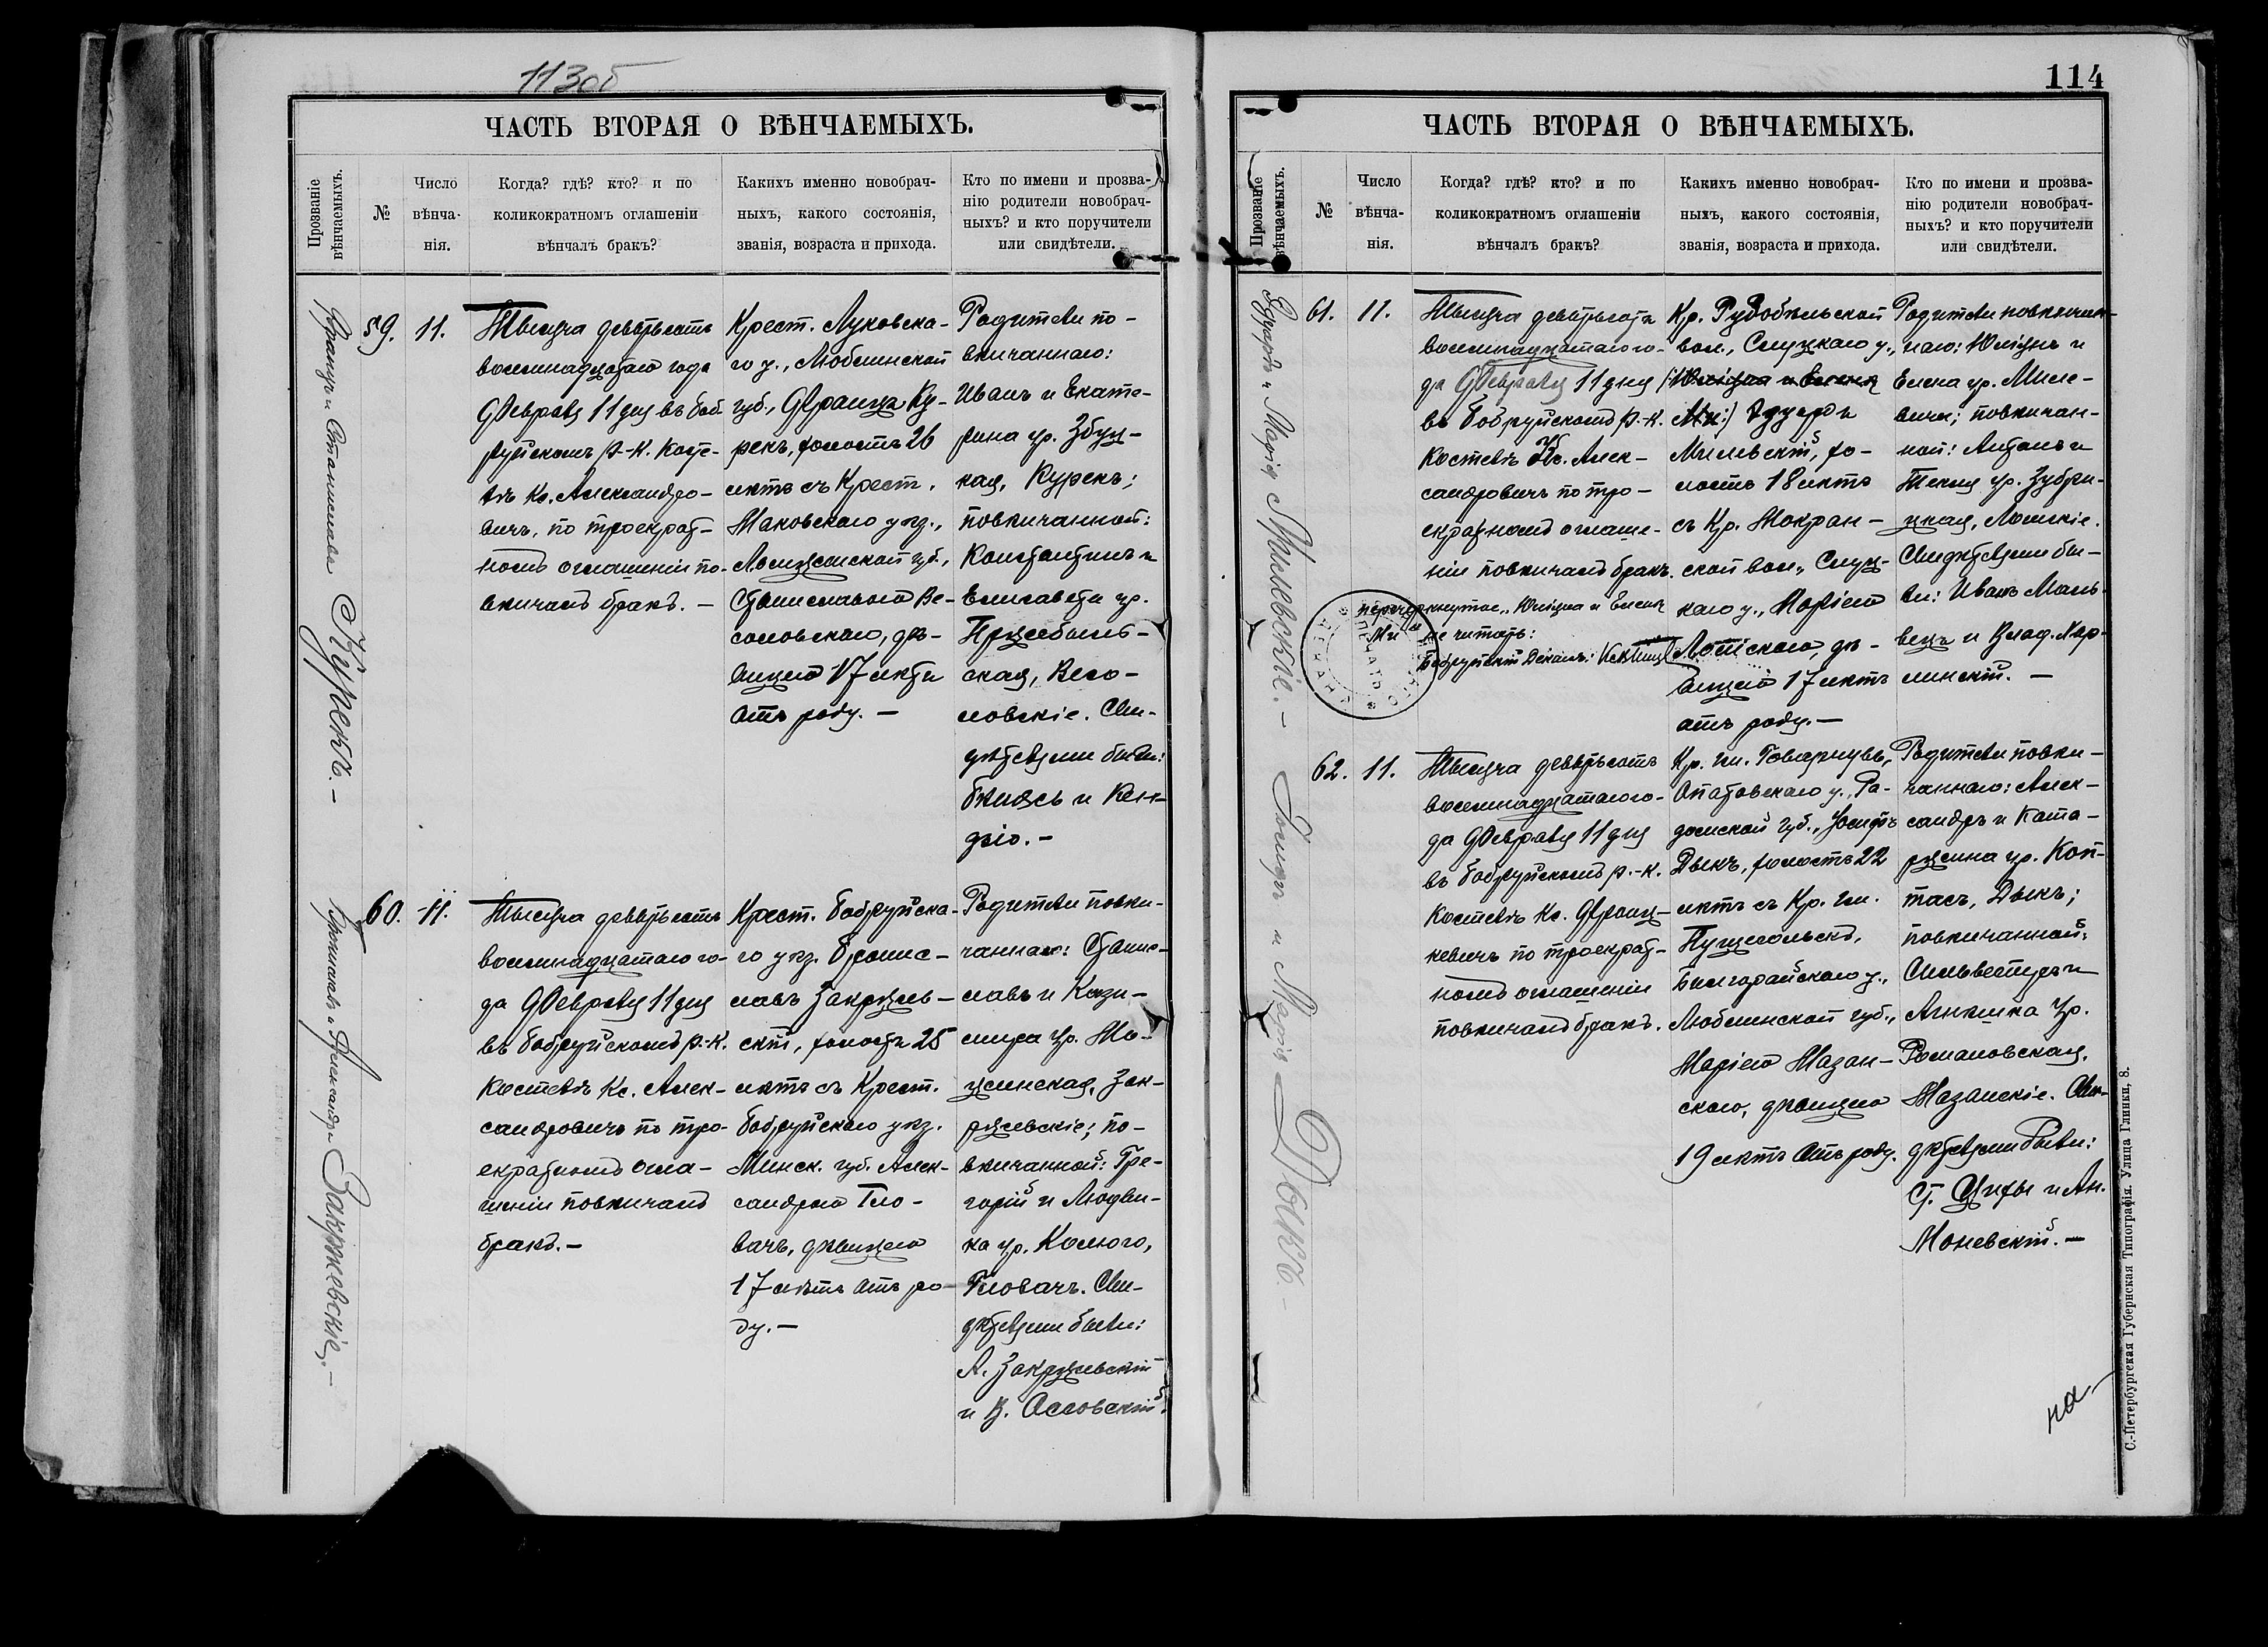 113об
ЧАСТЬ ВТОРАЯ О ВѢНЧАЕМЫХЪ.
Прозваніе
вѣнчаемыхъ.
№
Число
вѣнча-
нія.
Когда? гдѣ? кто? и по
коликократномъ оглашеніи
вѣнчалъ бракъ?
Какихъ именно новобрач-
ныхъ, какого состоянія,
званія, возраста и прихода.
Кто по имени и прозва-
нію родители новобрач-
ныхъ? и кто поручители
или свидѣтели.
Францъ и Станислава Курекъ. –
59.
11.
Тысяча девятьсотъ
восемнадцатаго года
Февраля 11 дня въ Боб-
руйскомъ р.-к. косте-
лѣ Кс. Александро-
вичъ, по троекрат-
номъ оглашеніи по-
вѣнчалъ бракъ. –
Крест. Луковска-
го у., Люблинской
губ., Францъ Ку-
рекъ, холостъ 26
лѣтъ съ Крест.
Маковскаго уѣз.,
Ломжинской губ.,
Станиславою Ве-
соловскою, дѣ-
вицею 17 лѣтъ
отъ роду. –
Родители по-
вѣнчаннаго:
Иванъ и Екате-
рина ур. Збуц-
кая, Курекъ;
повѣнчанной:
Константинъ и
Елисавета ур.
Пржебыль-
ская, Весо-
ловскіе. Сви-
дѣтелями были:
и Кен-
дзю. –
Брониславъ и Александра Закржевскіе. –
60.
11.
Тысяча девятьсотъ
восемнадцатаго го-
да Февраля 11 дня
въ Бобруйскомъ р.-к.
костелѣ Кс. Алек-
сандровичъ по тро-
екратномъ огла-
шеніи повѣнчалъ
бракъ. –
Крест. Бобруйска-
го уѣз. Бронис-
лавъ Закржев-
скій, холостъ 25
лѣтъ съ Крест.
Бобруйскаго уѣз.
Минск. губ. Алек-
сандрою Гло-
вачъ, дѣвицею
17 лѣтъ отъ ро-
ду. –
Родители повѣн-
чаннаго: Станис-
лавъ и Кази-
мира ур.
Зак-
ржевскіе; по-
вѣнчанной: Гре-
горій и Людви-
ка ур.
Гловачъ. Сви-
дѣтелями были:
А. Закржевскій
и В. Осовскій.
114
ЧАСТЬ ВТОРАЯ О ВѢНЧАЕМЫХЪ.
Прозваніе
вѣнчаемыхъ.
№
Число
вѣнча-
нія.
Когда? гдѣ? кто? и по
коликократномъ оглашеніи
вѣнчалъ бракъ?
Какихъ именно новобрач-
ныхъ, какого состоянія,
званія, возраста и прихода.
Кто по имени и прозва-
нію родители новобрач-
ныхъ? и кто поручители
или свидѣтели.
Эдуардъ и Марія Милевскіе. –
61.
11.
Тысяча девятьсотъ
восемнадцатаго го-
да Февраля 11 дня
въ Бобруйскомъ р.-к.
Костелѣ Кс. Алек-
сандровичъ по тро-
екратномъ оглаше-
ніи повѣнчалъ бракъ.
перечеркнутое „Юліана и Елена
Ми не читать:
Бобруйскій Деканъ:
Кр. Рудобельской
вол., Слуцкаго у.,
(Юліана и Елена
Ми:) Эдуардъ
Милевскій, хо-
лостъ 18 лѣтъ
съ Кр. Мокран-
ской вол., Слуц-
каго у., Маріею
дѣ-
вицею 17 лѣтъ
отъ роду. –
Родители повѣнчан-
наго: Юліанъ и
Елена ур. Миле-
вичи; повѣнчан-
ной: Антонъ и
Текля ур. Зубри-
цкая,
Свидѣтелями бы-
ли: Иванъ Маль-
вецъ и Влад. Кар-
линскій. –
Іосифъ и Марія Дыкъ. –
62.
11.
Тысяча девятьсотъ
восемнадцатаго го-
да Февраля 11 дня
въ Бобруйскомъ р.-к.
Костелѣ Кс. Франц-
кевичъ по троекрат-
номъ оглашеніи
повѣнчалъ бракъ.
Кр. гм.
Опатовскаго у., Ра-
домской губ., Іосифъ
Дыкъ, холостъ 22
лѣтъ съ Кр. гм.
Пущесольскъ,
Билгорайскаго у.,
Люблинской губ.,
Маріею Мазан-
скою, дѣвицею
19 лѣтъ отъ роду.
Родители повѣн-
чаннаго: Алек-
сандръ и Ката-
ржина ур. Коп-
тасъ, Дыкъ;
повѣнчанной:
Сильвестръ и
Агнѣшка ур.
Романовская,
Мазанскіе. Сви-
дѣтелями были:
Ст. и Ан.
Моневскій. –
на
С.-Петербургская Губернская Типографія. Улица Глинки, 8.